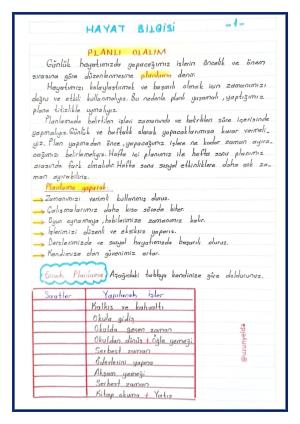 HAYAT BİLGİSİ
-1-
PLANLI OLALIM
Günlük hayatımızda yapacağımız işlerin öncelik ve önem
sırasına göre düzenlenmesine planlama denir.
Hayatımızı kolaylaştırmak ve başarılı olmak için zamanımızı
doğru ve etkili kullanmalıyız. Bu nedenle planlı yaşamalı, yaptığımız
plana titizlikle uymalıyız.
Planlamada belirtilen işleri zamanında ve belirtilen süre içerisinde
yapmalıyız. Günlük ve haftalık olarak yapacaklarımıza karar vermeli-
yiz. Plan yapmadan önce, yapacağımız işlere ne kadar zaman ayıra-
cağımızı belirlemeliyiz. Hafta içi planımız ile hafta sonu planımız
arasında fark olmalıdır. Hafta sonu sosyal etkinliklere daha çok za-
man ayırabiliriz.
Planlama yaparak;
Zamanımızı verimli kullanmış oluruz.
Çalışmalarımız daha kısa sürede biter.
Oyun oynamaya, hobilerimize zamanımız kalır.
İşlerimizi düzenli ve eksiksiz yaparız.
Derslerimizde ve sosyal hayatımızda başarılı oluruz.
Kendimize olan güvenimiz artar.
Günlük Planlama Aşağıdaki tabloyu kendinize göre doldurunuz.
Saatler
Yapılacak İşler
Kalkış ve kahvaltı
Okula gidiş
Okulda geçen zaman
Okuldan dönüş + Öğle yemeği
Serbest zaman
Ödevlerini yapma
Akşam yemeği
Serbest zaman
Kitap okuma + Yatış